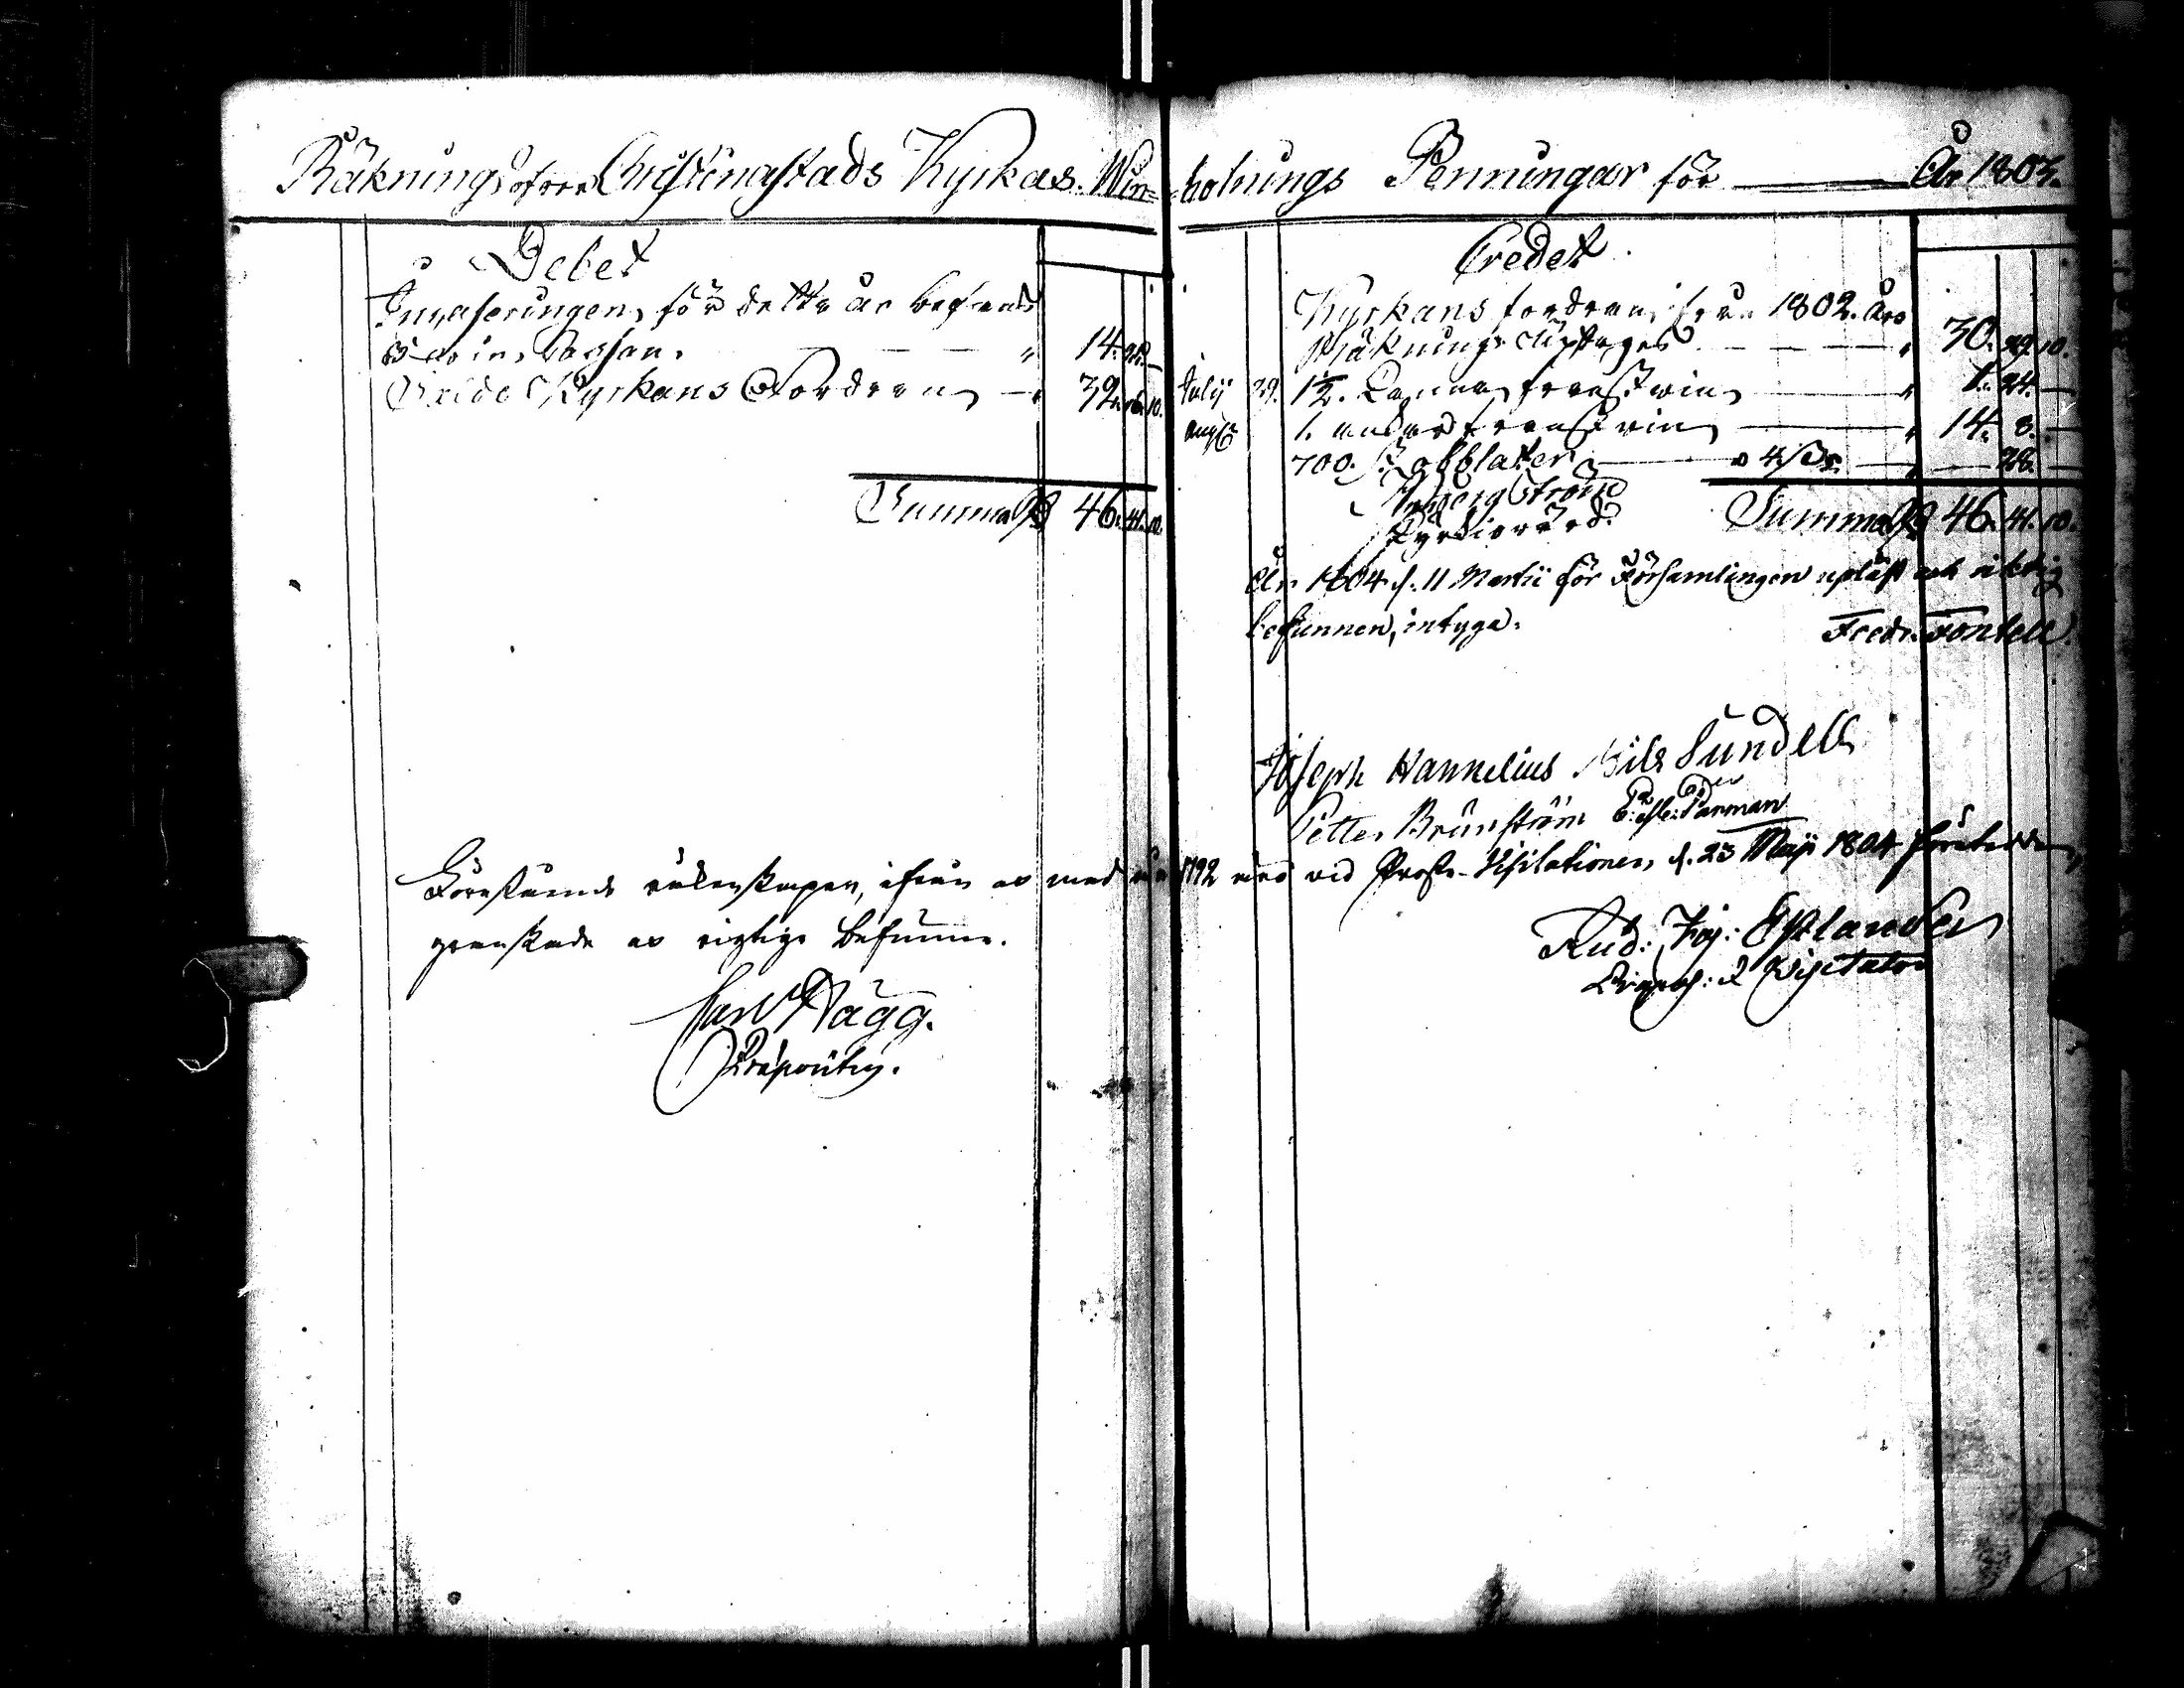 Räkning öfver Christinæstads Kyrkas Win- hållnings Penningar för År 1803.
Debet
för detta år
14.
Kyrkans Fordran 32. 16. 10.
Summa 46. 41. 10.
Credet
Kyrkans fordran ifrån 1802. Års
Räkning 30. 29. 10.
Julij 29. 1½. Kanna franskt win 1. 24. —
Aug 1. ankar franskt win 14. 8. —
700. st oblater a 4 28. —
Kyrkiovärd.
Summa 46. 41. 10.
År 1804 d. 11 Martii för Församlingen upläst och riktig
befunnen, intyga.
Fredr. Fontell
Joseph Hannelius Nils Sundell
Petter Brunström
Parman
Förestående räkenskaper, ifrån och med år 1792 vid Prosts-Visitationen d. 23 Maji 1804
granskade och rigtige befunne.
Carl Hägg.
Præpositus.
Rud: Estlander
Visitator